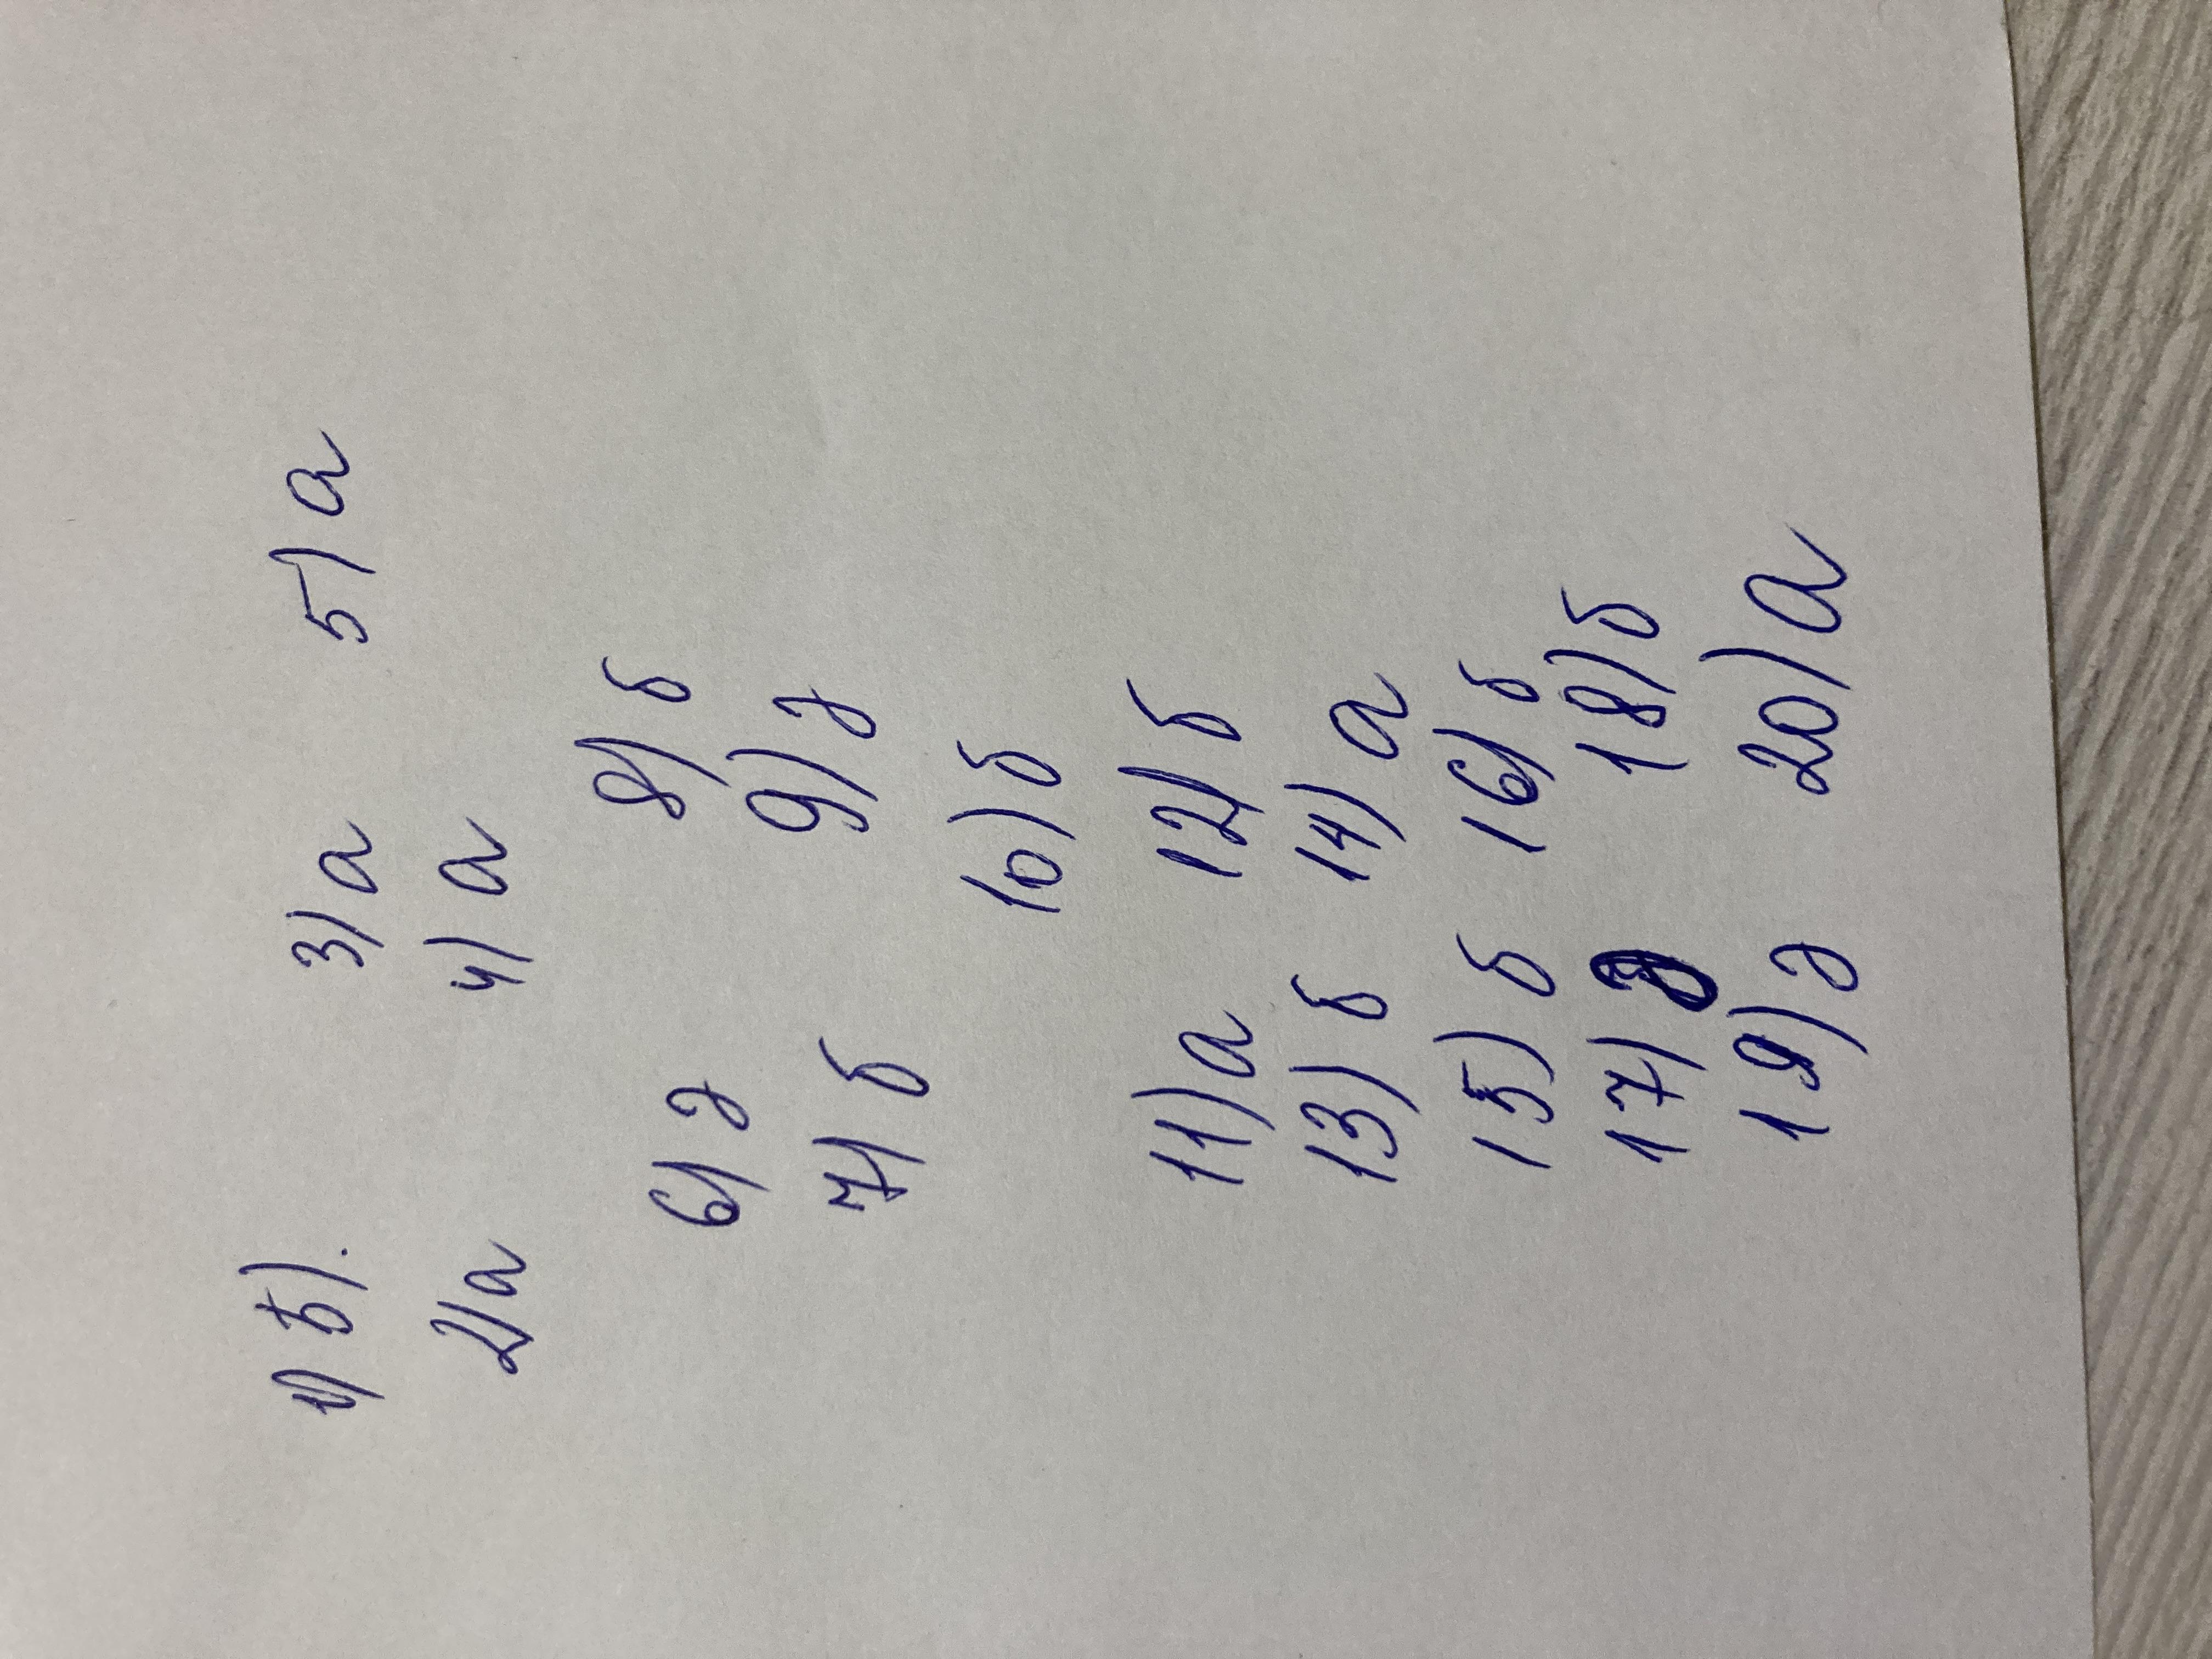 1) б). 3) а 5) а
2) а 4) а
6) д 8) б
7) б 9) д
10) б
11) а 12) б
13) б 14) а
15) б 16) б
17) 18) б
19) д 20) а